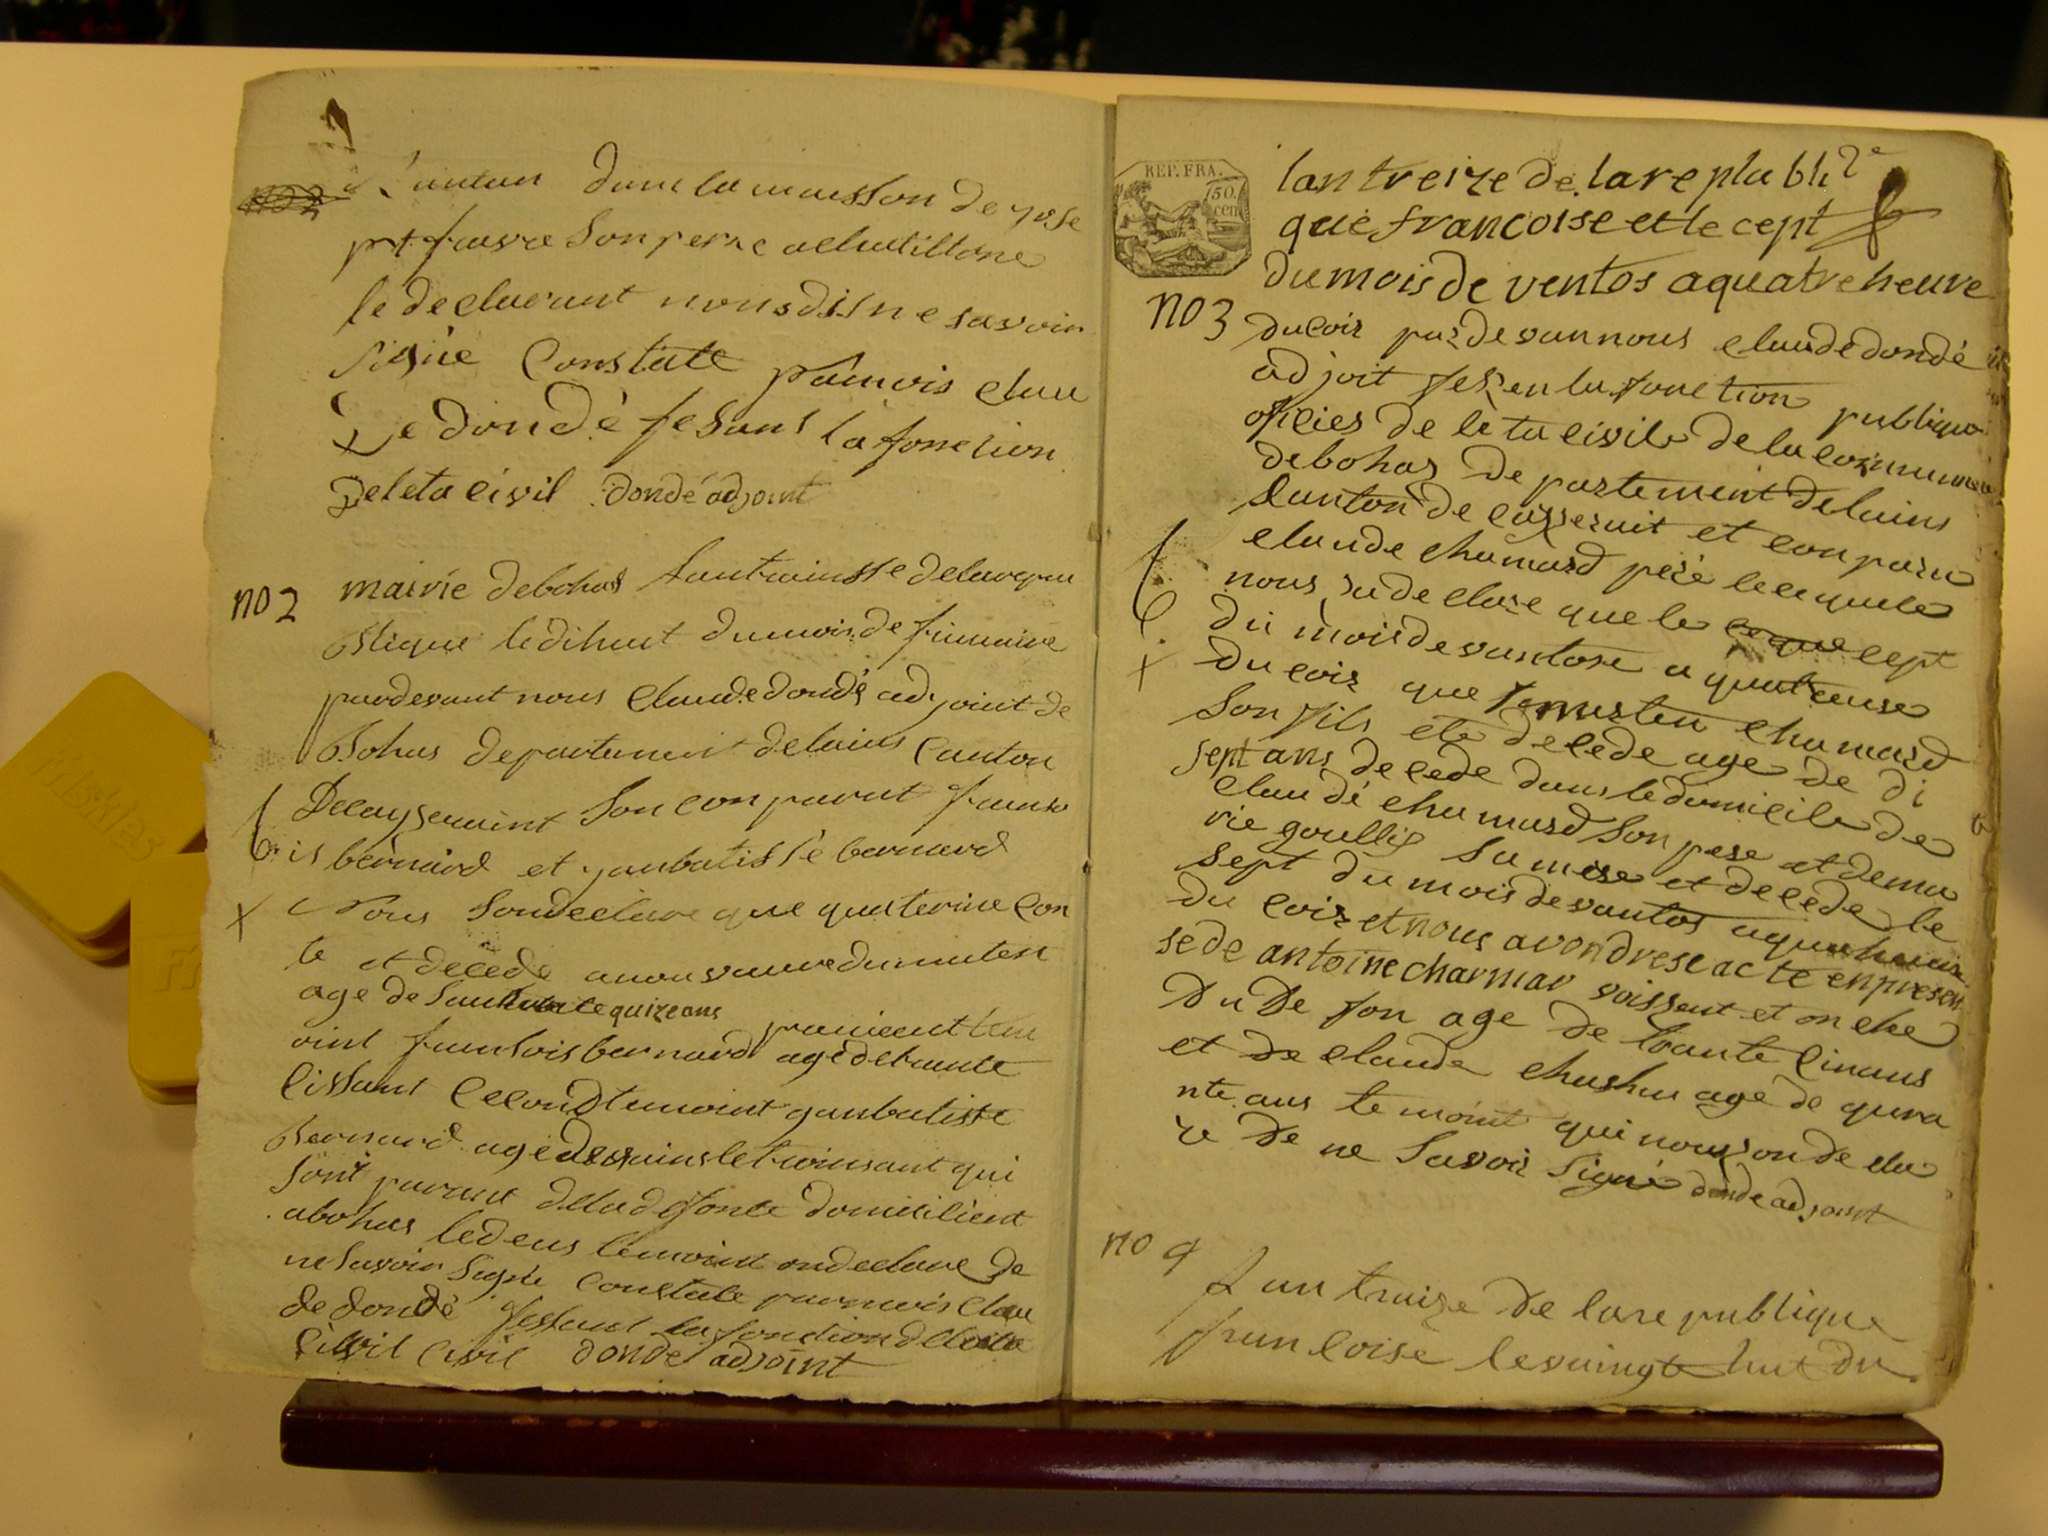 dans la maisson de
son perre a chatillone
le declarant nous dis ne savoir
signé Constate par mois Clau
de dondé fesant la fonction
de leta civil dondé adjoint
no 2
mairie de bohas lantrainsse delarepu
blique le dihuit du mois de frimaire
pardevant nous Claude dondé adjoint de
Bohas departement delains Canton
De Cayseraint son conparut franso
is bernard et janbatisse bernard
Nous son declare que quaterine Con
te et decede a du maten
age de quize ans
oint fransois bernard age de trante
Ci second temoint janbatiste
Bernard age qui
sont parant dela defonte domicilient
a bohas le deus temoint on declare de
ne savoir signé constate par mois Clau
de dondé fesant la fonction de leta
civil dondé adjoint
REP. FRA.
50.
cen
lan treize de la replubli
que francoise et le cept
du mois de ventos a quatre heure
no 3
du coir par devan nous claude dondé
adjoit fesen la fonction publique
oficies de leta civile de la commune
de bohas de partement delains
Canton de Cayseruit et conparu
claude chamard pere lecquele
nous a declare que le cept
du mois de vantose a quatreure
du coir que chamard
son fils ete decede age de di
sept ans decede dans le domicile de
claude chamard son pere et de ma
rie goullis sa mere et decede le
sept du mois de vantos a
du coir et nous avon drese acte en presen
se de antoine charmar voissent et oncle
du De fon age de trante cinans
et de claude age de qura
nte ans temoint qui nous on de cla
re de ne savoir signé dondé adjoint
no 4
Lan traize de la republique
francoise le vaingt huit du